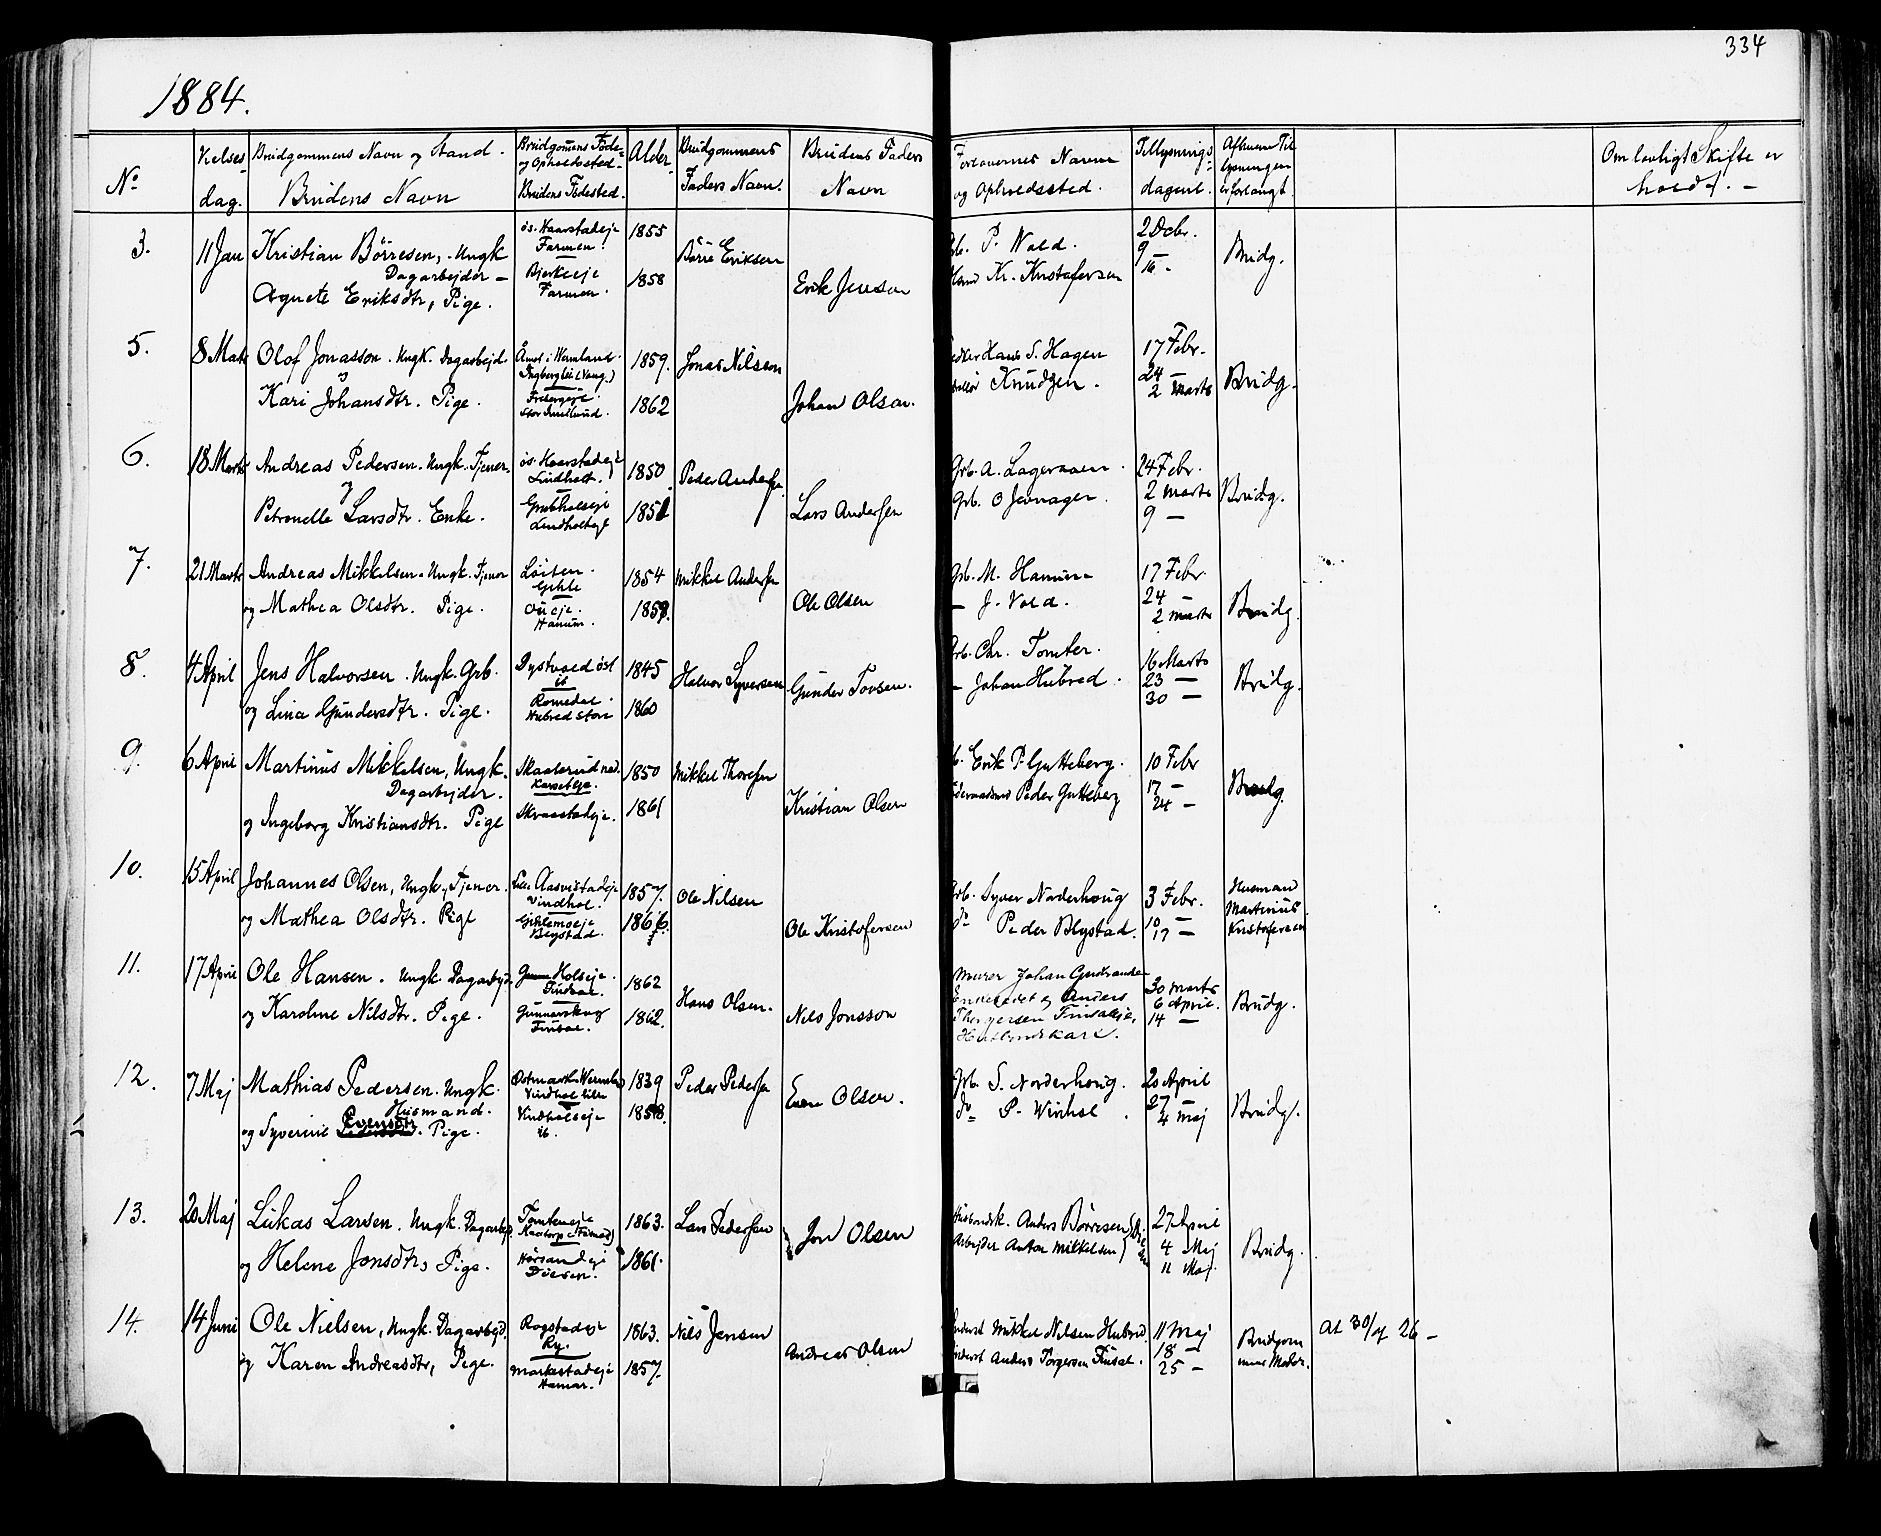 334
1884.
No
Vielses dag.
Brudgommens Navn og Stand.
Brudens Navn
Brudgomens Føde- og Opholdssted.
Brudens Fødested.
Alder
Brudgommens Faders Navn.
Brudens Faders Navn
Forlovernes Navne og Opholdssted.
Tillysnings- dagene.
Af hvem Til- lysningen er forlangt.
Om lovligt Skifte er holdt. -
3.
11 Jan
Kristian Børresen, Ungk
Dagarbejder -
Agnete Eriksdtr, Pige.
øs. Kaarstadeje
Farmen.
Bjerkeeje
Farmen.
1855
1858
Børre Eriksen
Erik Jensen
P. Vold.
Kr. Kristofersen
2 Dcbr.
9 -
16 -
Brudg.
5.
8 Marts
Olof Jonasson. Ungk. Dagarbejd.
og
Kari Johansdtr. Pige.
1859.
1862
Jonas Nilsson
Johan Olsen.
Hans S. Hagen
Knudsen.
17 Febr.
24 -
2 Marts
Brudg.
6.
18 Marts
Andreas Pedersen. Ungk. Tjener.
og
Petronelle Larsdtr. Enke.
øs. Kaarstadeje
Lindholt.
1850
1851
Peder Andersen
Lars Andersen
Grb. A. Lageraaen.
Grb. O Jevnager.
24 Febr.
2 Marts
9 -
Brudg.
7.
21 Marts
Andreas Mikkelsen. Ungk. Tjener
og Mathea Olsdtr. Pige.
Løiten.
Hanum.
1854
1859.
Mikkel Andersen
Ole Olsen
Grb. M. Hanum
- J. Vold.
17 Febr.
24 -
2 Marts
Brudg.
8.
4 April
Jens Halvorsen. Ungk. Grb.
og Lina Gundersdtr. Pige.
Dystvold øst
is
Romedal
Hubred store
1845
1860
Halvor Syversen
Gunder Tovsen.
Grb. Chr. Tomter.
- Johan Hubred.
16 Marts
23 -
30 -
Brudg.
9.
6 April
Martinus Mikkelsen, Ungk.
Dagarbejder.
og Ingeborg Kristiansdtr. Pige
Skaalerud ned.
Skraastadeje.
1850
1861
Mikkel Thoresen
Kristian Olsen
Erik P. Gutteberg.
Peder Gutteberg
10 Febr
17 -
24 -
Brudg.
10.
15 April
Johannes Olsen, Ungk, Tjener.
og Mathea Olsdtr. Pige
Aasvestadeje
Vindhol.
Blystad.
1857.
1866.
Ole Nilsen
Ole Kristofersen
Grb. Syver Norderhoug
do Peder Blystad.
3 Febr.
10 -
17 -
Husmand
Martinus
Kristofersen
11.
17 April
Ole Hansen. Ungk. Dagarbejd.
og Karoline Nilsdtr. Pige.
Holseje.
Finsal.
Gunnerskog
Finsal.
1862
1862.
Hans Olsen.
Nils Jonsson
Murer Johan Gudbrandsen
og Anders
Thorgersen Finsaleje,
Husbondskarl.
30 Marts
6 April.
14 -
Brudg.
12.
7 Maj
Mathias Pedersen. Ungk.
Husmand.
Evensdtr
og Syverine Pedersdtr. Pige.
Østmark Wermland
Vindhol lille
Vindholseje
ib.
1839
1858.
Peder Pedersen
Even Olsen.
Grb. S. Norderhoug.
do P. Vinhol.
20 April
27 -
4 Maj
Brudg.
13.
20 Maj
Lukas Larsen. Ungk. Dagarbejd.
og Helene Jonsdtr, Pige.
Tomtereje
1863.
1861.
Lars Pedersen
Jon Olsen
Husbondsk. Anders Børresen
Arbejder Anton Mikkelsen
27 April
4 Mej
11 Maj.
Brudg.
14.
14 Juni
Ole Nielsen, Ungk. Dagarbejd.
og Karen Andreasdtr, Pige.
Rogstadeje
Ry.
Markestadeje
Hamar.
1863.
1857.
Nils Jensen
Andreas Olsen
Mikkel Nilsen Hubred.
Anders Torgersen Finsal.
11 Maj
18 -
25 -
Brudgom
mens Moder.
At 30/4 26 -